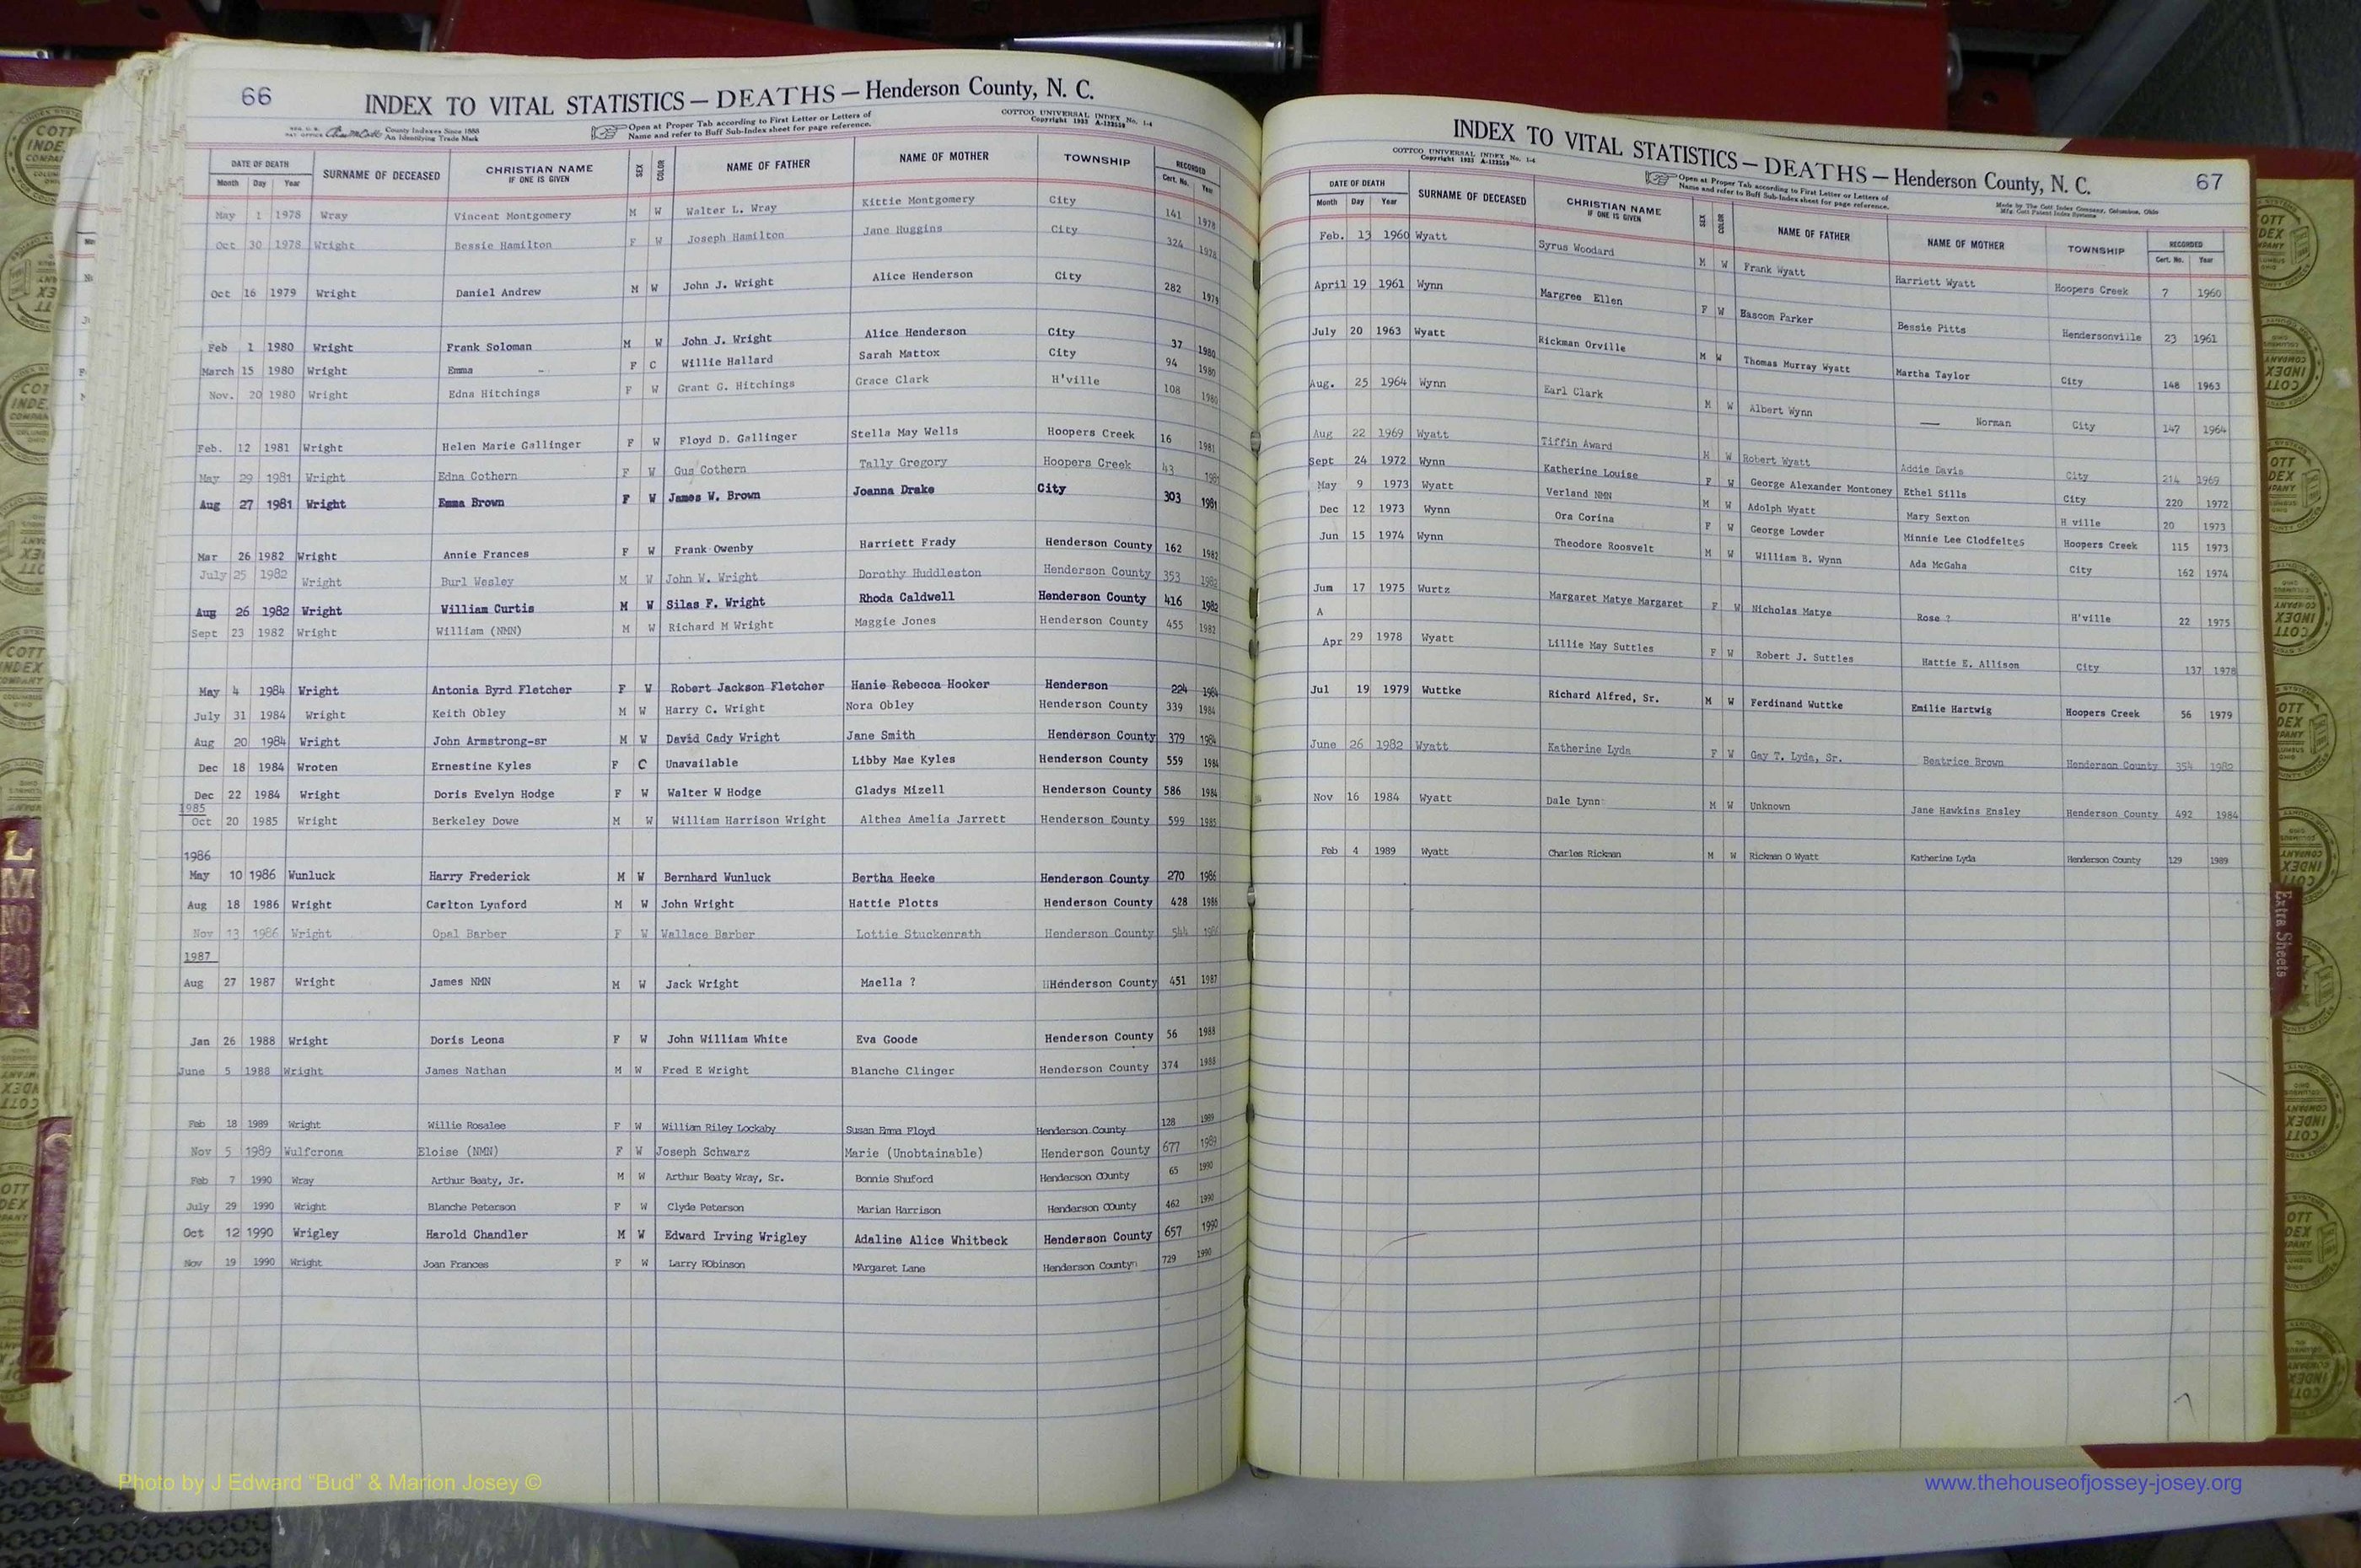 66
INDEX TO VITAL STATISTICS — DEATHS — Henderson County, N. C.
County Indexes Since 1888
An Identifying Trade Mark
Open at Proper Tab according to First Letter or Letters of
Name and refer to Buff Sub-Index sheet for page reference.
COTTCO UNIVERSAL INDEX No. 1-4
DATE OF DEATH SURNAME OF DECEASED CHRISTIAN NAME IF ONE IS GIVEN SEX COLOR NAME OF FATHER NAME OF MOTHER TOWNSHIP RECORDED
Month Day Year Cert. No. Year
May 1 1978 Wray Vincent Montgomery M W Walter L. Wray Kittie Montgomery City 141 1978
Oct 30 1978 Wright Bessie Hamilton F W Joseph Hamilton Jane Huggins City 324 1978
Oct 16 1979 Wright Daniel Andrew M W John J. Wright Alice Henderson City 282 1979
Feb 1 1980 Wright Frank Soloman M W John J. Wright Alice Henderson City 37 1980
March 15 1980 Wright Emma F C Willie Hallard Sarah Mattox City 94 1980
Nov. 20 1980 Wright Edna Hitchings F W Grant G. Hitchings Grace Clark H'ville 108 1980
Feb. 12 1981 Wright Helen Marie Gallinger F W Floyd D. Gallinger Stella May Wells Hoopers Creek 16 1981
May 29 1981 Wright Edna Cothern F W Gus Cothern Tally Gregory Hoopers Creek 43 1981
Aug 27 1981 Wright Emma Brown F W James W. Brown Joanna Drake City 303 1981
Mar 26 1982 Wright Annie Frances F W Frank Owenby Harriett Frady Henderson County 162 1982
July 25 1982 Wright Burl Wesley M W John W. Wright Dorothy Huddleston Henderson County 353 1982
Aug 26 1982 Wright William Curtis M W Silas F. Wright Rhoda Caldwell Henderson County 416 1982
Sept 23 1982 Wright William (NMN) M W Richard M Wright Maggie Jones Henderson County 455 1982
May 4 1984 Wright Antonia Byrd Fletcher F W Robert Jackson Fletcher Hanie Rebecca Hooker Henderson 224 1984
July 31 1984 Wright Keith Obley M W Harry C. Wright Nora Obley Henderson County 339 1984
Aug 20 1984 Wright John Armstrong-sr M W David Cady Wright Jane Smith Henderson County 379 1984
Dec 18 1984 Wroten Ernestine Kyles F C Unavailable Libby Mae Kyles Henderson County 559 1984
Dec 22 1984 Wright Doris Evelyn Hodge F W Walter W Hodge Gladys Mizell Henderson County 586 1984
1985
Oct 20 1985 Wright Berkeley Dowe M W William Harrison Wright Althea Amelia Jarrett Henderson Eounty 599 1985
1986
May 10 1986 Wunluck Harry Frederick M W Bernhard Wunluck Bertha Heeke Henderson County 270 1986
Aug 18 1986 Wright Carlton Lynford M W John Wright Hattie Plotts Henderson County 428 1986
Nov 13 1986 Wright Opal Barber F W Wallace Barber Lottie Stuckenrath Henderson County 544 1986
1987
Aug 27 1987 Wright James NMN M W Jack Wright Maella ? Henderson County 451 1987
Jan 26 1988 Wright Doris Leona F W John William White Eva Goode Henderson County 56 1988
June 5 1988 Wright James Nathan M W Fred E Wright Blanche Clinger Henderson County 374 1988
Feb 18 1989 Wright Willie Rosalee F W William Riley Lockaby Susan Emma Floyd Henderson County 128 1989
Nov 5 1989 Wulfcrona Eloise (NMN) F W Joseph Schwarz Marie (Unobtainable) Henderson County 677 1989
Feb 7 1990 Wray Arthur Beaty, Jr. M W Arthur Beaty Wray, Sr. Bonnie Shuford Henderson COunty 65 1990
July 29 1990 Wright Blanche Peterson F W Clyde Peterson Marian Harrison Henderson COunty 462 1990
Oct 12 1990 Wrigley Harold Chandler M W Edward Irving Wrigley Adaline Alice Whitbeck Henderson County 657 1990
Nov 19 1990 Wright Joan Frances F W Larry RObinson MArgaret Lane Henderson County 729 1990
INDEX TO VITAL STATISTICS — DEATHS — Henderson County, N. C.
67
COTTCO UNIVERSAL INDEX No. 1-4
Open at Proper Tab according to First Letter or Letters of
Name and refer to Buff Sub-Index sheet for page reference.
Made by The Cott Index Company, Columbus, Ohio
DATE OF DEATH SURNAME OF DECEASED CHRISTIAN NAME IF ONE IS GIVEN SEX COLOR NAME OF FATHER NAME OF MOTHER TOWNSHIP RECORDED
Month Day Year Cert. No. Year
Feb. 13 1960 Wyatt Syrus Woodard M W Frank Wyatt Harriett Wyatt Hoopers Creek 7 1960
April 19 1961 Wynn Margree Ellen F W Bascom Parker Bessie Pitts Hendersonville 23 1961
July 20 1963 Wyatt Rickman Orville M W Thomas Murray Wyatt Martha Taylor City 148 1963
Aug. 25 1964 Wynn Earl Clark M W Albert Wynn — Norman City 147 1964
Aug 22 1969 Wyatt Tiffin Award M W Robert Wyatt Addie Davis City 214 1969
Sept 24 1972 Wynn Katherine Louise F W George Alexander Montoney Ethel Sills City 220 1972
May 9 1973 Wyatt Verland NMN M W Adolph Wyatt Mary Sexton H ville 20 1973
Dec 12 1973 Wynn Ora Corina F W George Lowder Minnie Lee Clodfeltes Hoopers Creek 115 1973
Jun 15 1974 Wynn Theodore Roosvelt M W William B. Wynn Ada McGaha City 162 1974
Jum 17 1975 Wurtz Margaret Matye Margaret F W Nicholas Matye Rose ? H'ville 22 1975
A
Apr 29 1978 Wyatt Lillie May Suttles F W Robert J. Suttles Hattie E. Allison City 137 1978
Jul 19 1979 Wuttke Richard Alfred, Sr. M W Ferdinand Wuttke Emilie Hartwig Hoopers Creek 56 1979
June 26 1982 Wyatt Katherine Lyda F W Gay T. Lyda, Sr. Beatrice Brown Henderson County 354 1982
Nov 16 1984 Wyatt Dale Lynn M W Unknown Jane Hawkins Ensley Henderson County 492 1984
Feb 4 1989 Wyatt Charles Rickman M W Rickman O Wyatt Katherine Lyda Henderson County 129 1989
Extra Sheets
Photo by J Edward “Bud” & Marion Josey ©
www.thehouseofjossey-josey.org